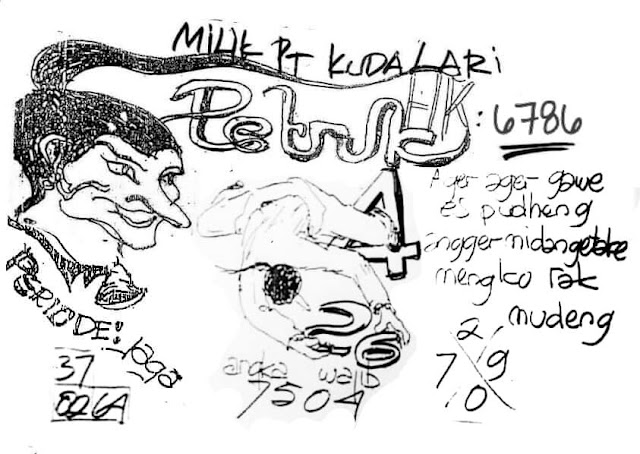 MILIK PT KUDA LARI
HK : 6786
4
Ager-ager gawe
es pudheng
angger midangetake
mengko rak
mudeng
PERIODE:
Jaga
37
26
angka wajib
7504
2
7 9
0